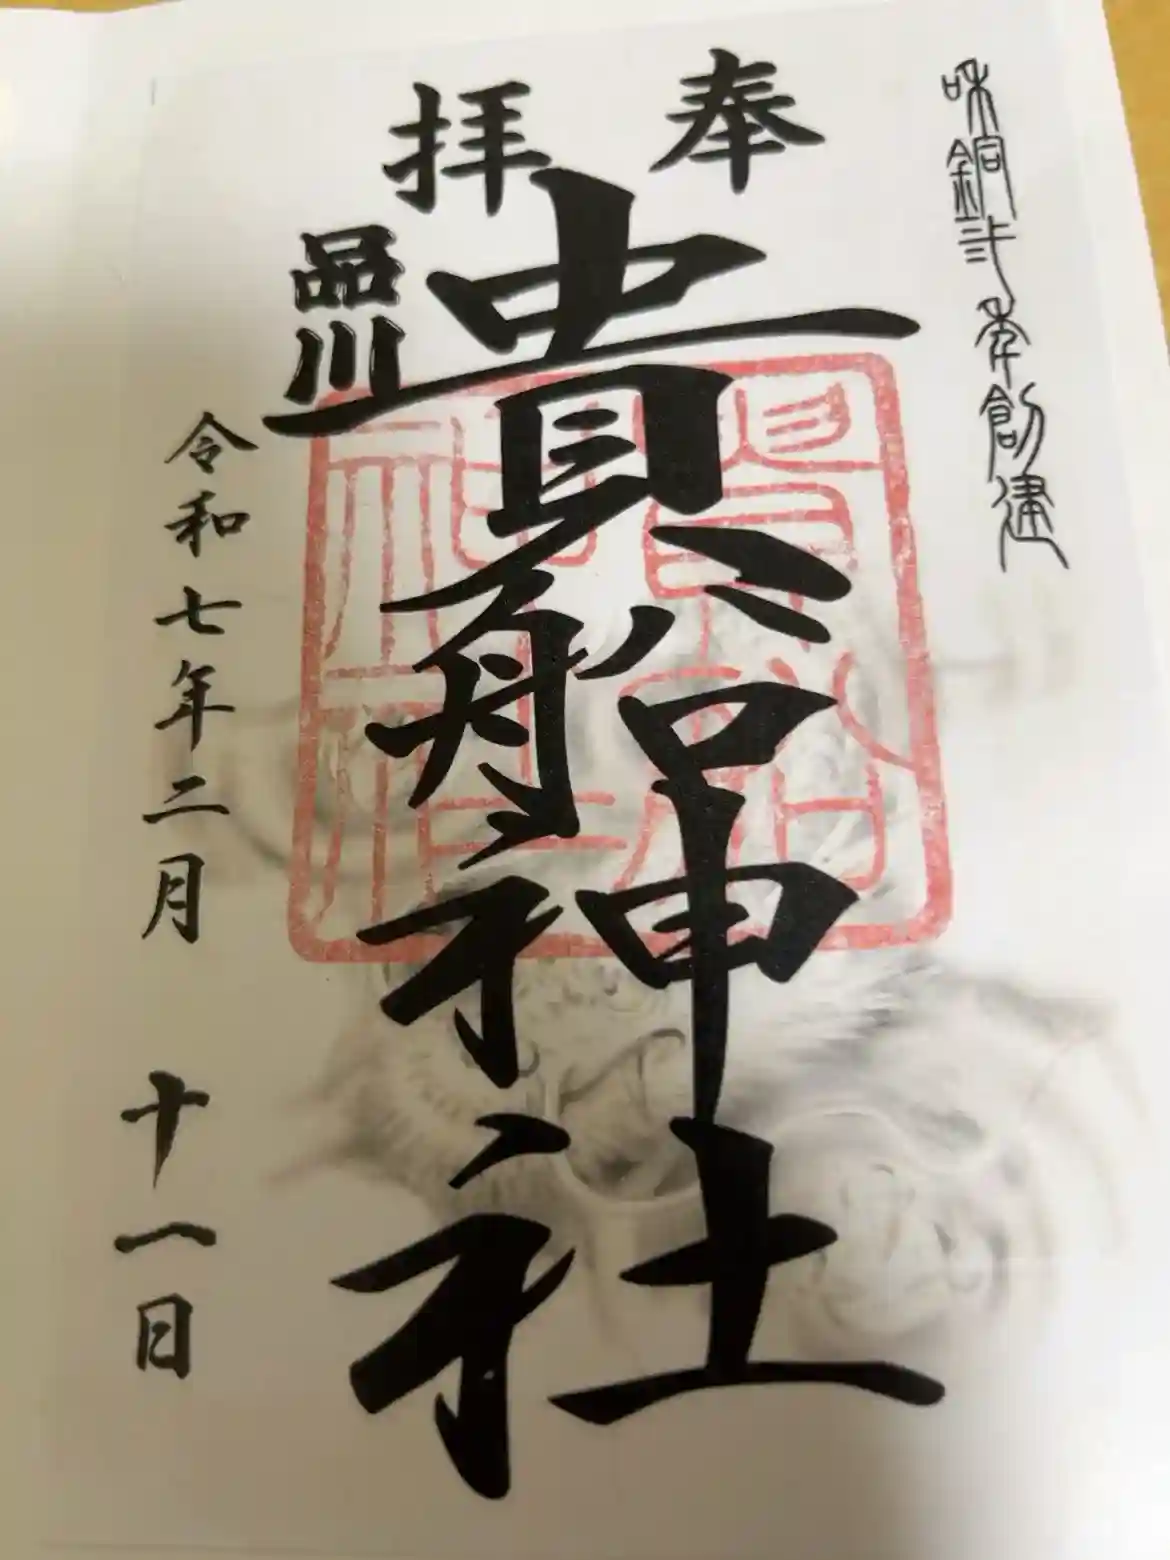 和銅弐年創建
奉拝
貴船神社
品川
令和七年二月十一日